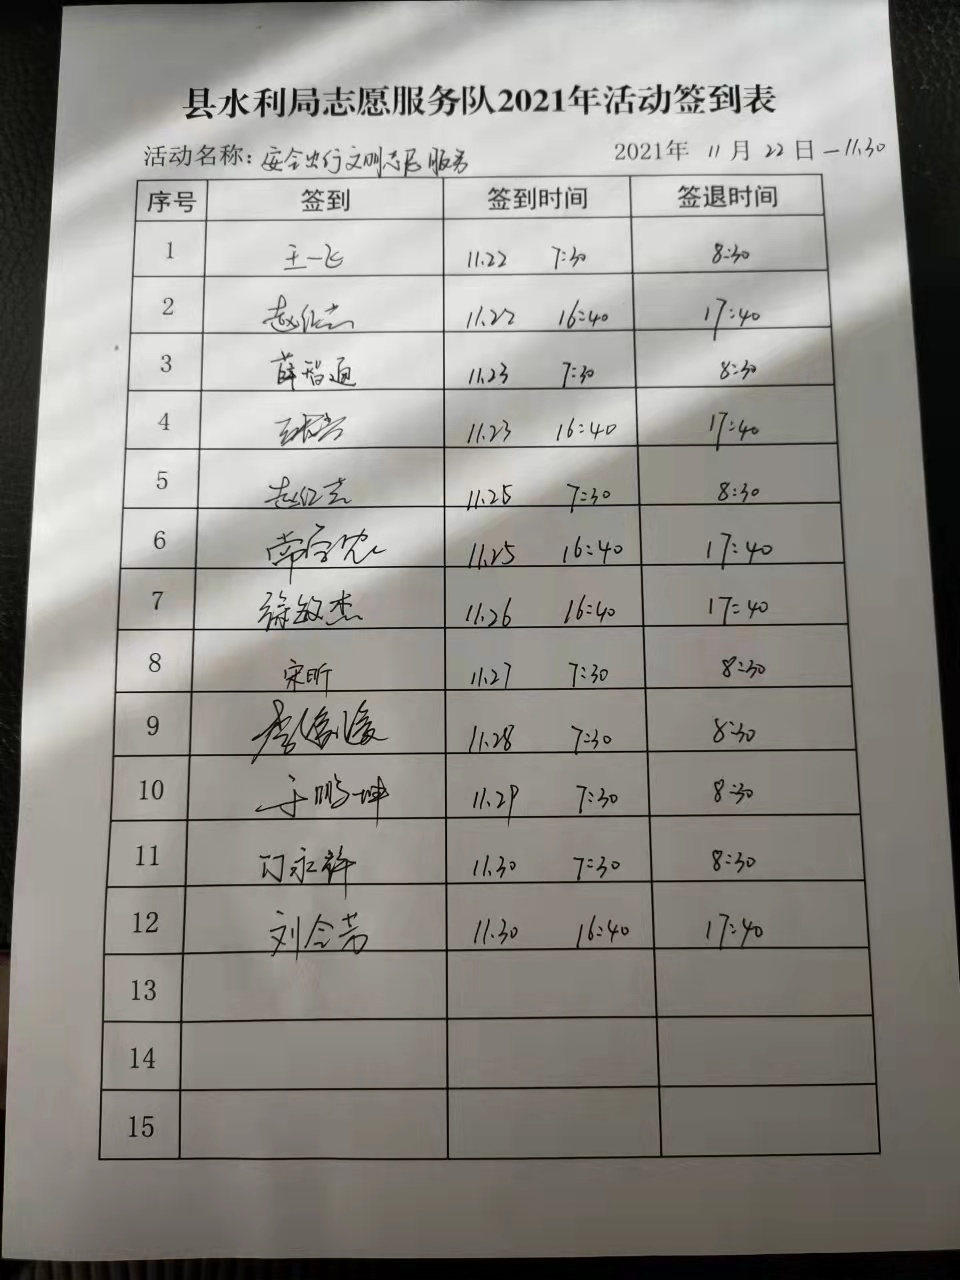 县水利局志愿服务队2021年活动签到表
活动名称：安全出行文明志愿服务 2021年 11月 22日 — 11.30
序号 签到 签到时间 签退时间
1 王一飞 11.22 7:30 8:30
2 赵红志 11.22 16:40 17:40
3 薛智通 11.23 7:30 8:30
4 11.23 16:40 17:40
5 赵红志 11.25 7:30 8:30
6 常 11.25 16:40 17:40
7 徐敏杰 11.26 16:40 17:40
8 宋昕 11.27 7:30 8:30
9 李 11.28 7:30 8:30
10 于鹏坤 11.29 7:30 8:30
11 订永祥 11.30 7:30 8:30
12 刘会芳 11.30 16:40 17:40
13
14
15